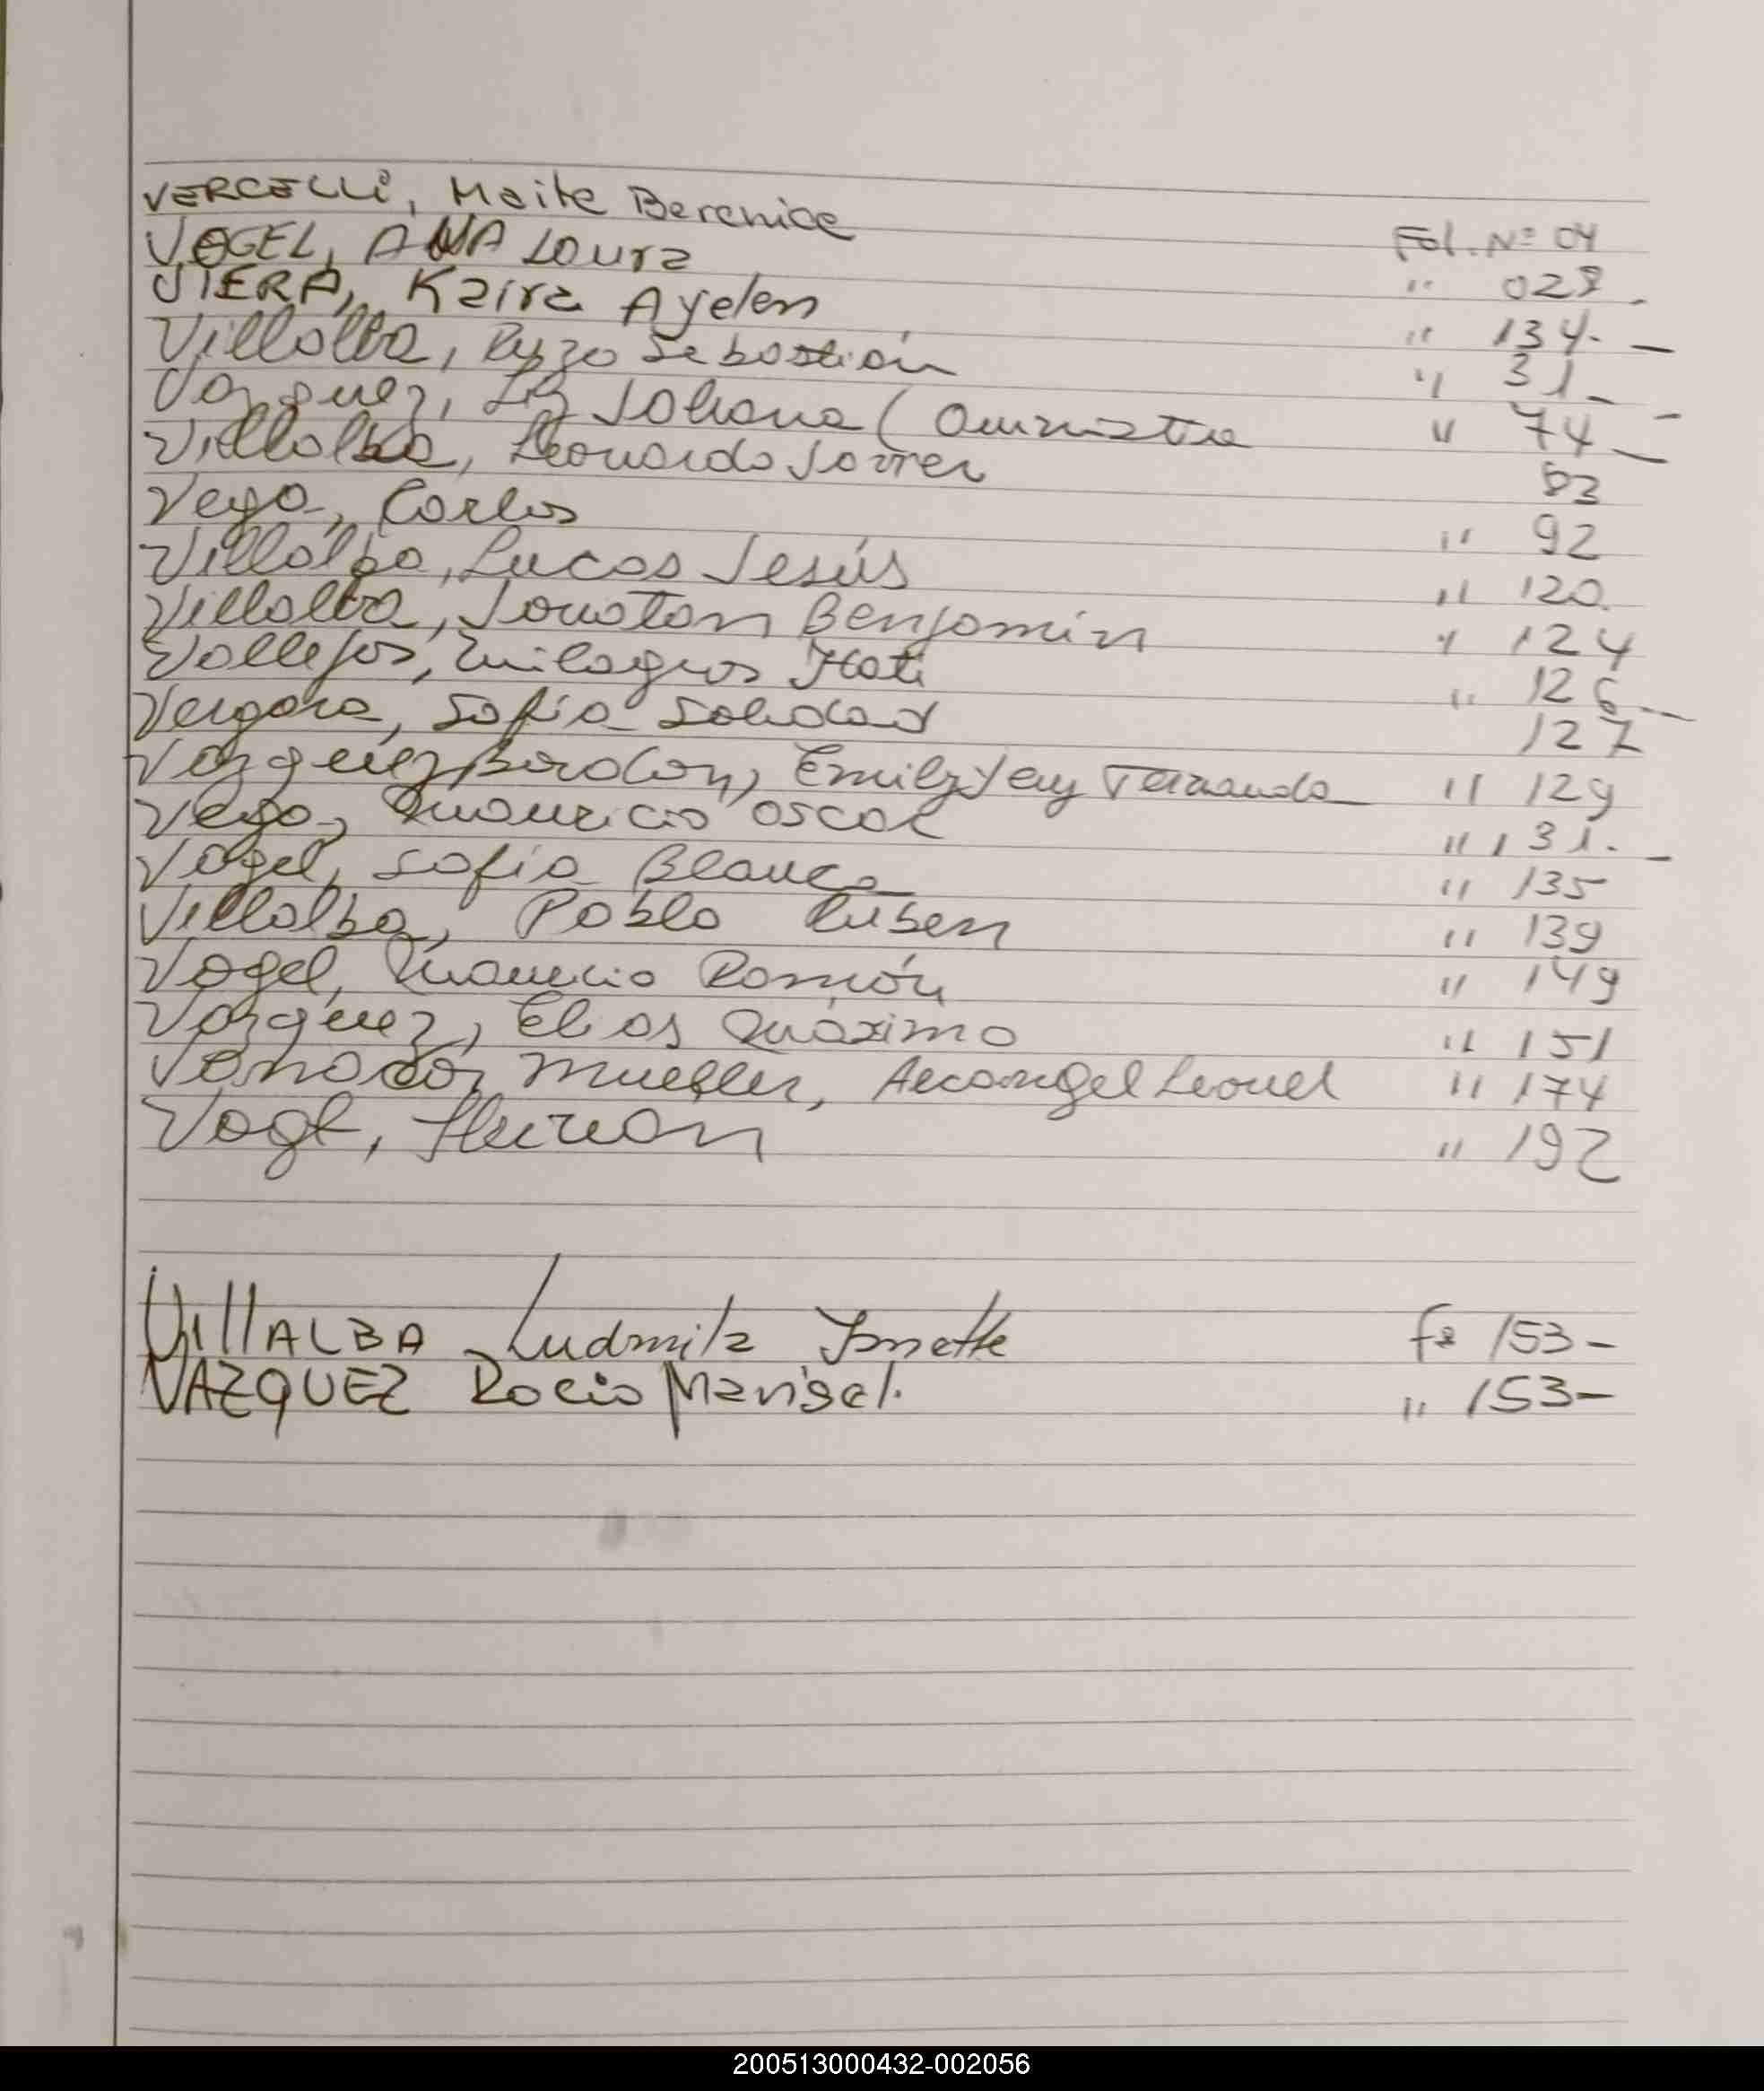 VERCELLI, Maite Berenice Fol. Nº 04
VOGEL, ANA Laura " 028.
VIERA, Kaira Ayelen " 134. -
Villalba, Sebastián " 31 -
Vazquez, Liz Johana ( " 74 -
Villalba, Leonardo Javier 83
Vega, Carlos " 92
Villalba, Lucas Jesús " 120.
Villalba, Jonatan Benjamín " 124
Vallejos, Milagros " 126 -
Vergara, Sofía Soledad 127
Vazquez Bordon, Emily " 129
Vega, Mauricio Oscar " 131. -
Vogel, Sofia Blanca " 135
Villalba, Pablo Ruben " 139
Vogel, Mauricio Ramón " 149
Vazquez, Elias Máximo " 151
Mueller, Arcangel Leonel " 174
Vogt, " 192
VillALBA Ludmila Fº 153-
VAZQUEZ Rocio Marisel. " 153-
200513000432-002056